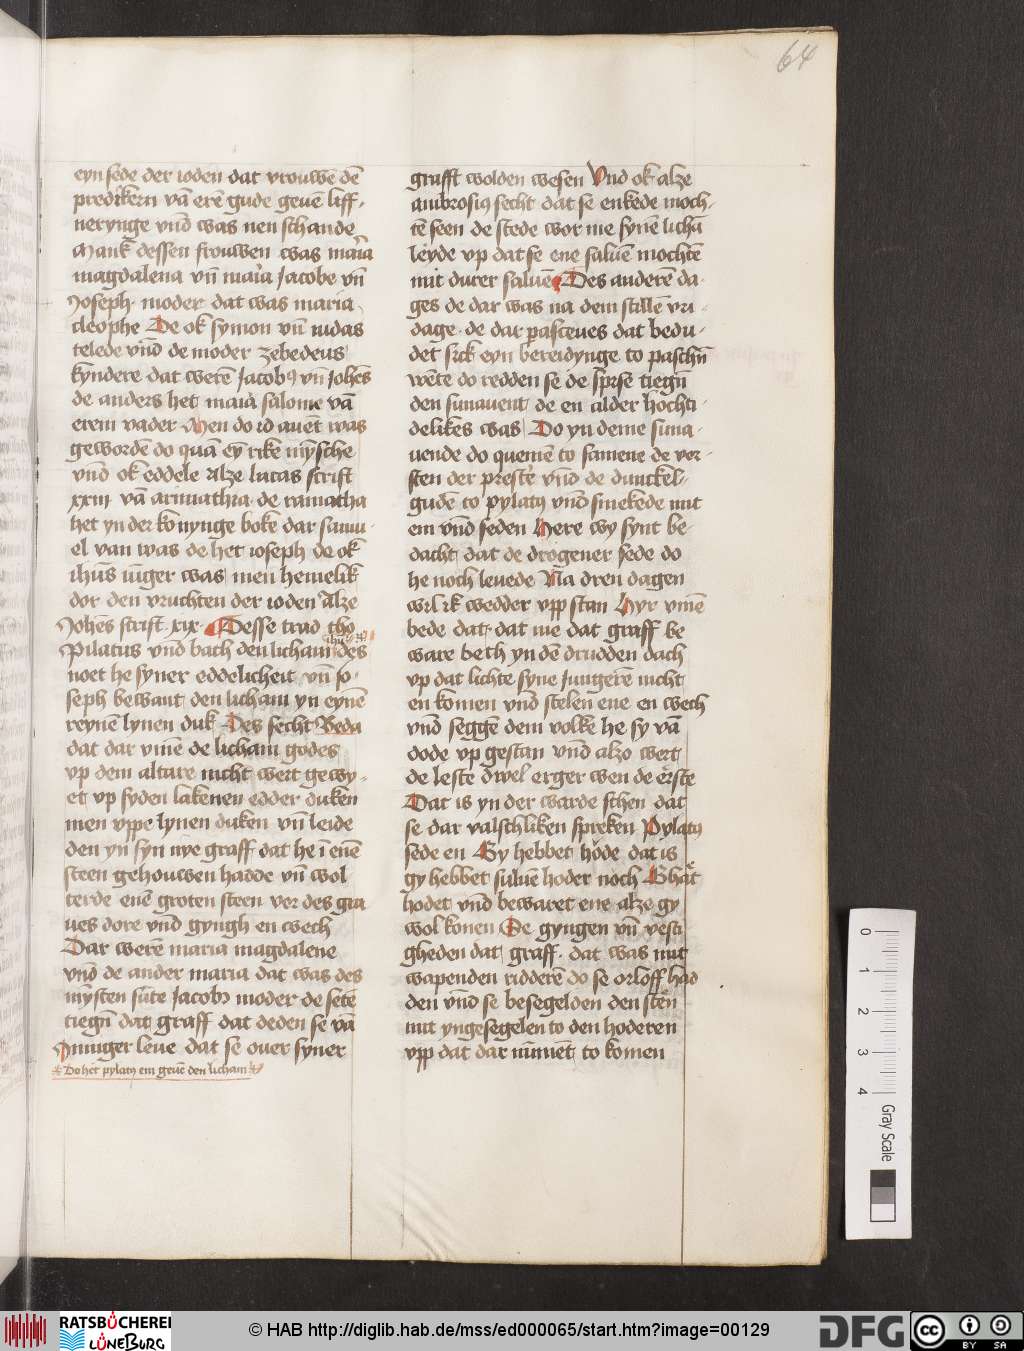 64
eyn sede der ioden dat vrouwē dē
predikern vā erē gude geuē liff-
nerynge vnd was nen schande
Mank dessen frouwen was maria
magdalena vn̄ maria Jacobe vn̄
Joseph moder dat was maria
cleophe De ok symon vn̄ iudas
telede vnd de moder zebedeus
kyndere dat werē Jacobꝰ vn̄ Johēs
de anders het maria salome vā
erem vader Men do id auēt was
gewordē do quā eȳ rike mȳsche
vnd ok eddele Alze lucas scrift
xxiii vā arimathia de ramatha
het yn der konynge boke dar samu-
el van was de het ioseph de ok
ihūs iūger was men hemelik
dor den vruchten der ioden Alze
Johēs scrift xix Desse trad tho
Pilatus vnd bath den licham ihū des
noet he syner eddelicheit vn̄ jo-
seph bewant den licham yn eynē
reynē lynen duk Des secht Beda
dat dar vm̄e de licham godes
vp dem altare nicht wert gewy-
et vp syden lakenen edder duken
men vppe lynen duken vn̄ leide
den yn syn nye graff dat he ī enē
steen gehouwen hadde vn̄ wol-
terde enē groten steen vor des gra
ues dore vnd gyngh en wech
Dar werē maria magdalene
vnd de ander maria dat was des
mȳsten sūte Jacobs moder de setē
tiegn̄ dat graff dat deden se vā
Inniger leue dat se ouer syner
Do het pylatꝰ em geuē den licham
grafft wolden wesen Vnd ok alze
ambrosiꝰ secht dat se enkede moch-
tē seen de stede wor me synē lichā
leyde vp dat se ene saluē mochtē
mit durer saluē Des anderē da-
ges de dar was na dem stillē vri-
dage de dar pasceues dat bedu-
det sick eyn bereidynge to paschn̄
wēte do redden se de spise tiegn̄
den sunauent de en alder hochti-
delikes was Do yn deme suna-
uende do quemē to samene de vor-
sten der prester vnd de dunckel-
gudē to pylatꝰ vnd smekede mit
em vnd seden Here wy synt be-
dacht dat de drogener sede do
he noch leuede Na dren dagen
wil ik wedder vpp stan Hyr vm̄e
bede dat dat me dat graff be
ware beth yn dē drudden dach
vp dat lichte syne Jungerē nicht
en komen vnd stelen ene en wech
vnd seggē dem volke he sy vā
dode vp gestan vnd alzo wert
de leste dwel erger wen de erste
Dat is yn der warde schen dat
se dar valschliken spreken Pylatꝰ
sede en Gy hebbet hode dat is
gy hebbet suluē hoder noch Ghat
hodet vnd bewaret ene alze gy
wol konen De gyngen vn̄ vesti
gheden dat graff dat was mit
wapenden ridderē do se orloff had
den vnd se besegelden den stēn
mit yngesegelen to den hoderen
vpp dat dar nūmēt to komen
0
1
2
3
4
Gray Scale
RATSBÜCHEREI
LÜNEBURG
© HAB http://diglib.hab.de/mss/ed000065/start.htm?image=00129
DFG
cc
BY SA